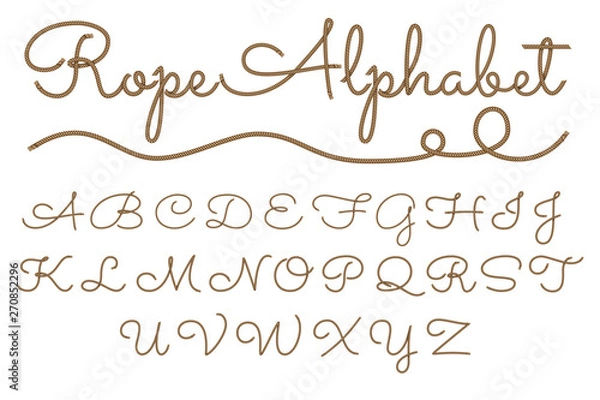 Rope Alphabet
A B C D E F G H I J
K L M N O P Q R S T
U V W X Y Z
Adobe Stock | #270852296